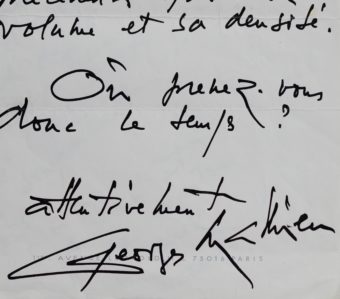 volume et sa densité.
Où prenez-vous
donc le temps ?
attentivement
Georges Mathieu
AVE 75016 PARIS